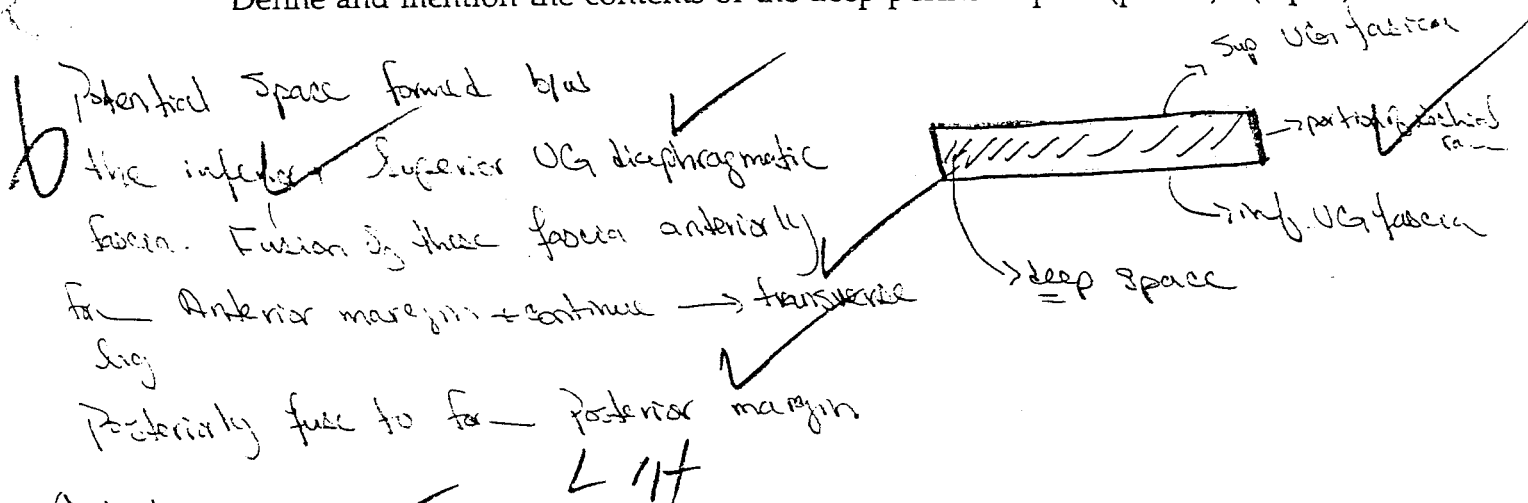 Define and mention the contents of the deep
Potential Space formed b/w
the inferior Superior UG diaphragmatic
fascia. Fusion of these fascia anteriorly
for Anterior margin + continue → transverse
lig
Posteriorly fuse to for Posterior margin
Sup UG fascia
→ portion
→ inf. UG fascia
→ deep space